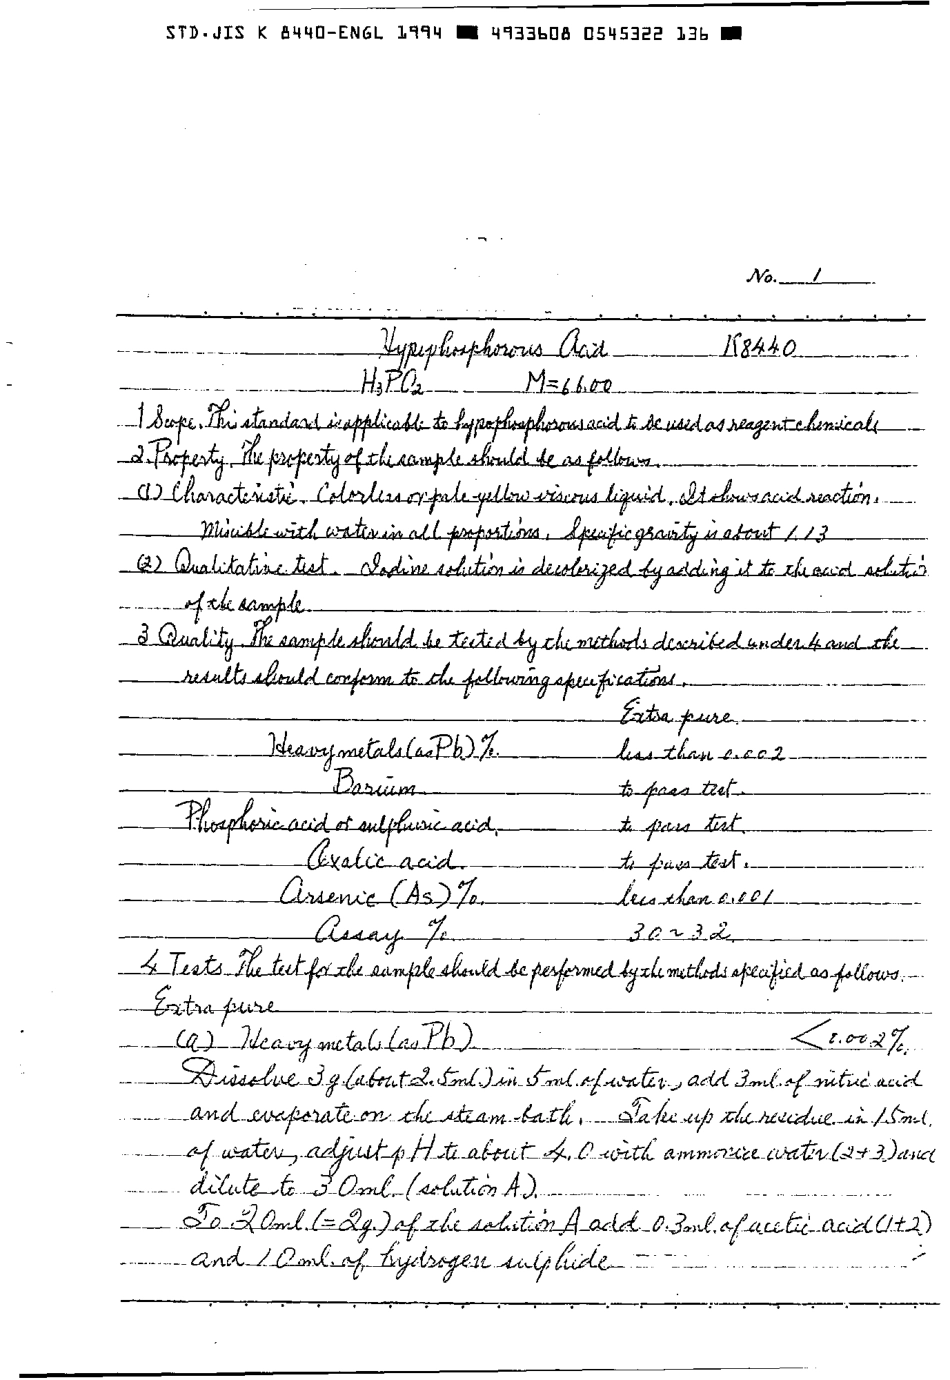 STD.JIS K 8440-ENGL 1994 ■ 4933608 0545322 136 ■
No. 1
Hypophosphorous Acid K8440
H₃PO₂ M=66.00
1 Scope. This standard is applicable to hypophosphorous acid to be used as reagent chemicals
2. Property. The property of the sample should be as follows.
(1) Characteristic. Colorless or pale yellow viscous liquid. It shows acid reaction.
Miscible with water in all proportions. Specific gravity is about 1.13
(2) Qualitative test. Iodine solution is decolorized by adding it to the acid solution
of the sample.
3 Quality. The sample should be tested by the methods described under 4 and the
results should conform to the following specifications.
Extra pure
Heavy metals (as Pb) % less than 0.002
Barium to pass test.
Phosphoric acid or sulphuric acid. to pass test.
Oxalic acid. to pass test.
Arsenic (As) %. less than 0.001
Assay % 30~32
4 Tests The test for the sample should be performed by the methods specified as follows.
Extra pure
(a) Heavy metals (as Pb) <0.002%.
Dissolve 3g (about 2.5ml.) in 5ml. of water, add 3ml. of nitric acid
and evaporate on the steam bath. Take up the residue in 15ml.
of water, adjust pH to about 4.0 with ammonia water (2+3) and
dilute to 30ml. (solution A).
To 20ml. (=2g.) of the solution A add 0.3ml. of acetic acid (1+2)
and 10ml. of hydrogen sulphide